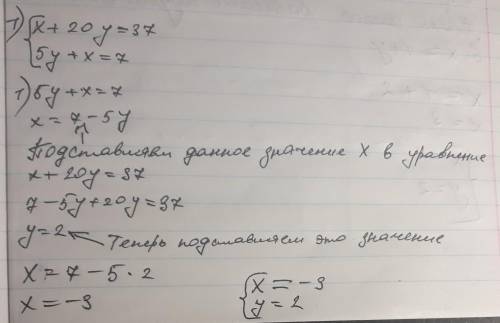 1) { x + 20y = 37
5y + x = 7
1) 5y + x = 7
x = 7 - 5y
Подставляем данное значение x в уравнение
x + 20y = 37
7 - 5y + 20y = 37
y = 2 ← Теперь подставляем это значение
x = 7 - 5 · 2
x = -3
{ x = -3
y = 2